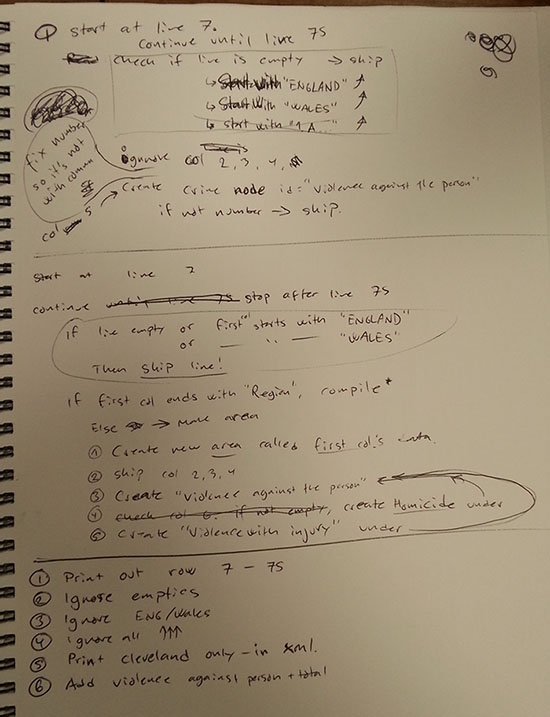 ① start at line 7.
continue until line 75
check if line is empty → skip
↳ Start with "ENGLAND" ↗
↳ Start with "WALES" ↗
↳ start with "1 A..." ↗
fix number
so it's not
with comma
ignore col 2, 3, 4,
col 5 → Create crime node id="violence against the person"
if not number → skip.
Start at line 7
continue until line 75 stop after line 75
If line empty or first starts with "ENGLAND"
or — " — "WALES"
Then skip line!
If first col ends with "Region", compile*
Else → make area
① Create new area called first col's data.
② skip col 2, 3, 4
③ Create "Violence against the person"
④ check col 6. if not empty, create Homicide under
⑤ Create "Violence with injury" under
① Print out row 7 - 75
② Ignore empties
③ Ignore ENG/Wales
④ ignore all ↑↑↑
⑤ Print Cleveland only - in xml.
⑥ Add violence against person + total